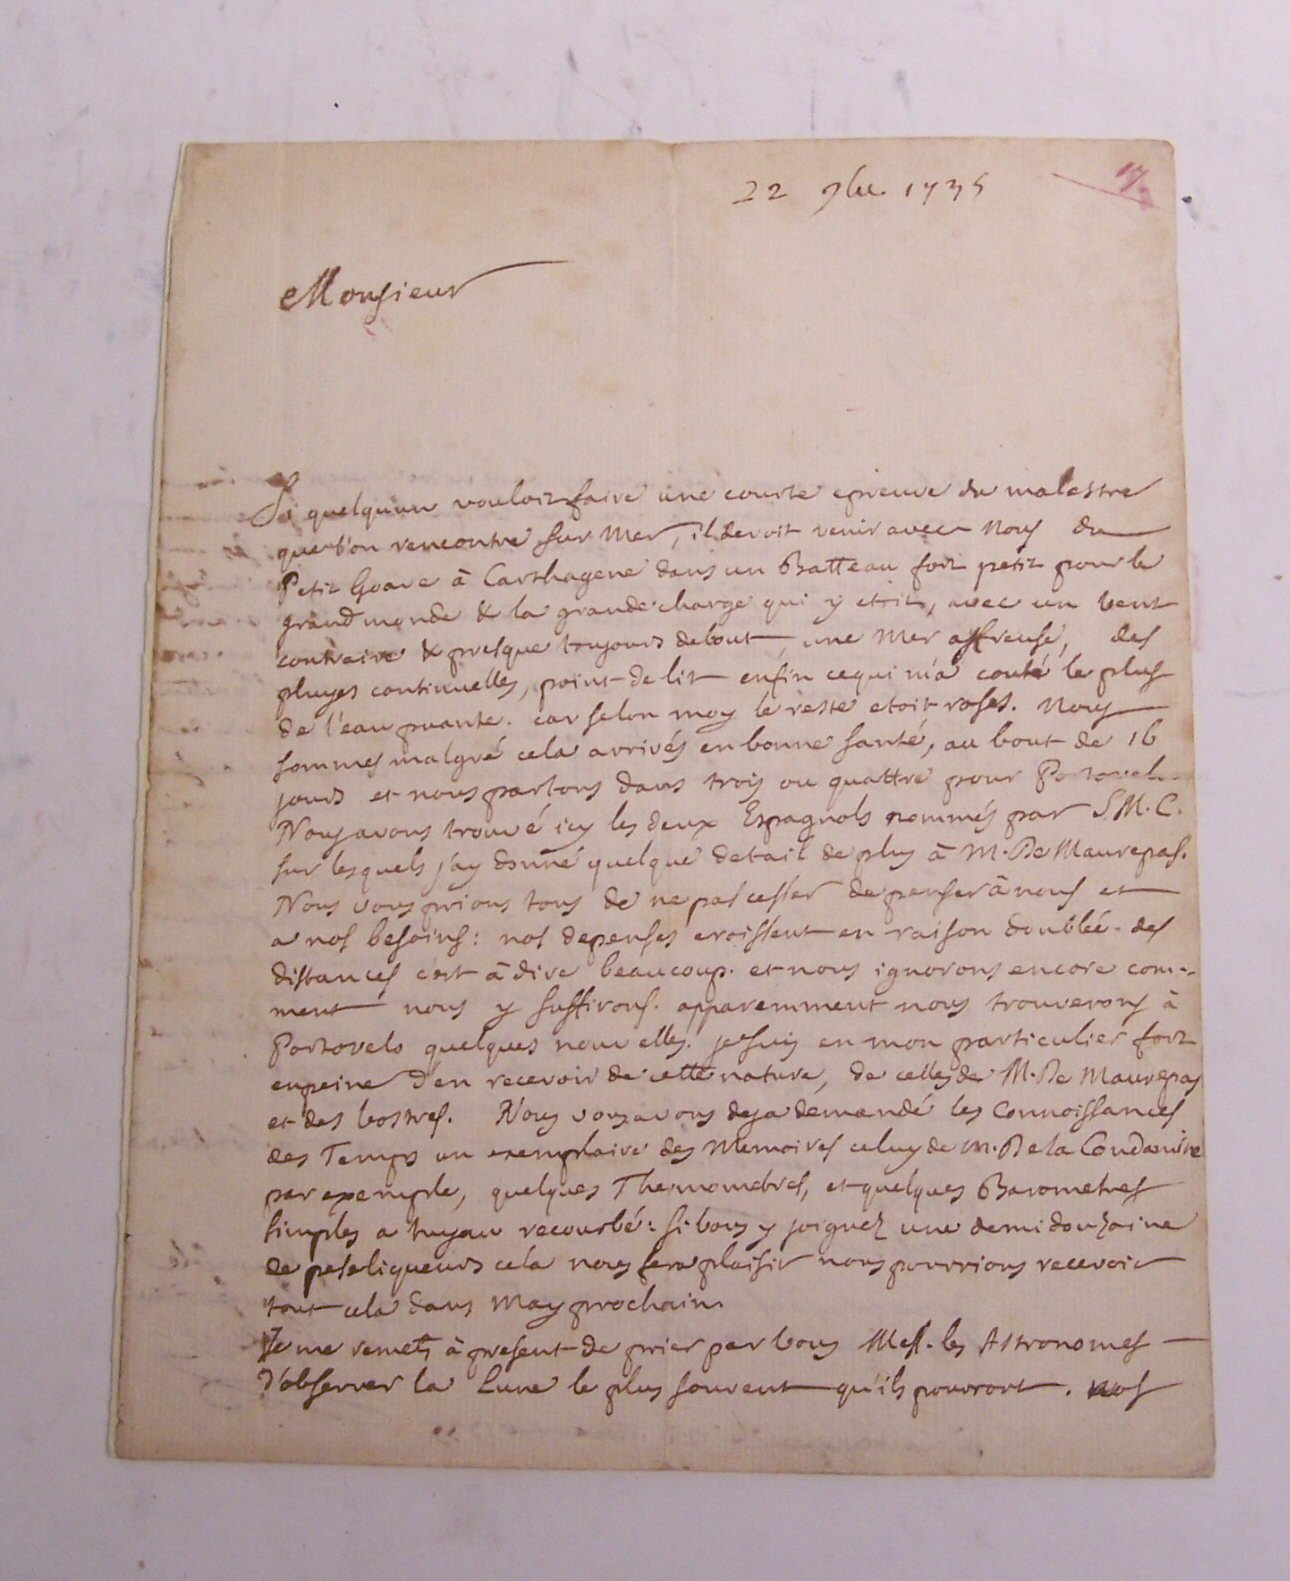 17
22 9bre 1735
Monsieur
Si quelquun vouloit faire une courte epreuve du malestre
que l'on rencontre sur Mer, il devoit venir avec Nous du
Petit Goave à Carthagene dans un Batteau fort petit pour le
grand monde & la grande charge qui y etoit, avec un vent
contraire & presque toujours debout, une Mer affreuse, des
pluyes continuelles, point de lit enfin ce qui m'a couté le plus
de l'eau puante. car selon moy le reste etoit roses. Nous
sommes malgré cela arrivés en bonne santé, au bout de 16
jours et nous partons dans trois ou quattre pour Portovelo
Nous avons trouvé icy les deux Espagnols nommés par S.M.C.
sur lesquels j'ay donné quelque detail de plus à M. De Maurepas.
Nous vous prions tous de ne pas cesser de penser à nous et
a nos besoins: nos depenses croissent en raison doublée des
distances c'est à dire beaucoup. et nous ignorons encore com-
ment nous y suffirons. apparemment nous trouverons à
Portovelo quelques nouvelles. je suis en mon particulier fort
en peine d'en recevoir de cette nature, de celles de M. De Maurepas
et des vostres. Nous vous avons deja demandé les Connoissances
des Temps un exemplaire des Memoires celuy de M. De la Condamine
par exemple, quelques Thermometres, et quelques Barometres
simples a tuyau recourbé: si vous y joignez une demi douzaine
de peseliqueurs cela nous fera plaisir nous pourrions recevoir
tout cela dans May prochain
Je me remets à present de prier par vous Mess. les Astronomes
d'observer la Lune le plus souvent qu'ils pourront. nos